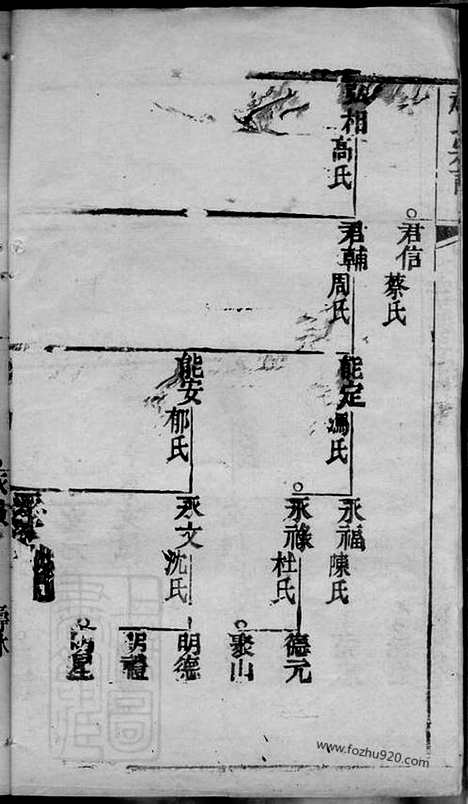 相
高氏
君信
蔡氏
君輔
周氏
能定
馮氏
能安
郁氏
永福
陳氏
永祿
杜氏
永文
沈氏
德元
聚山
明德
明禮
www.fozhu920.com